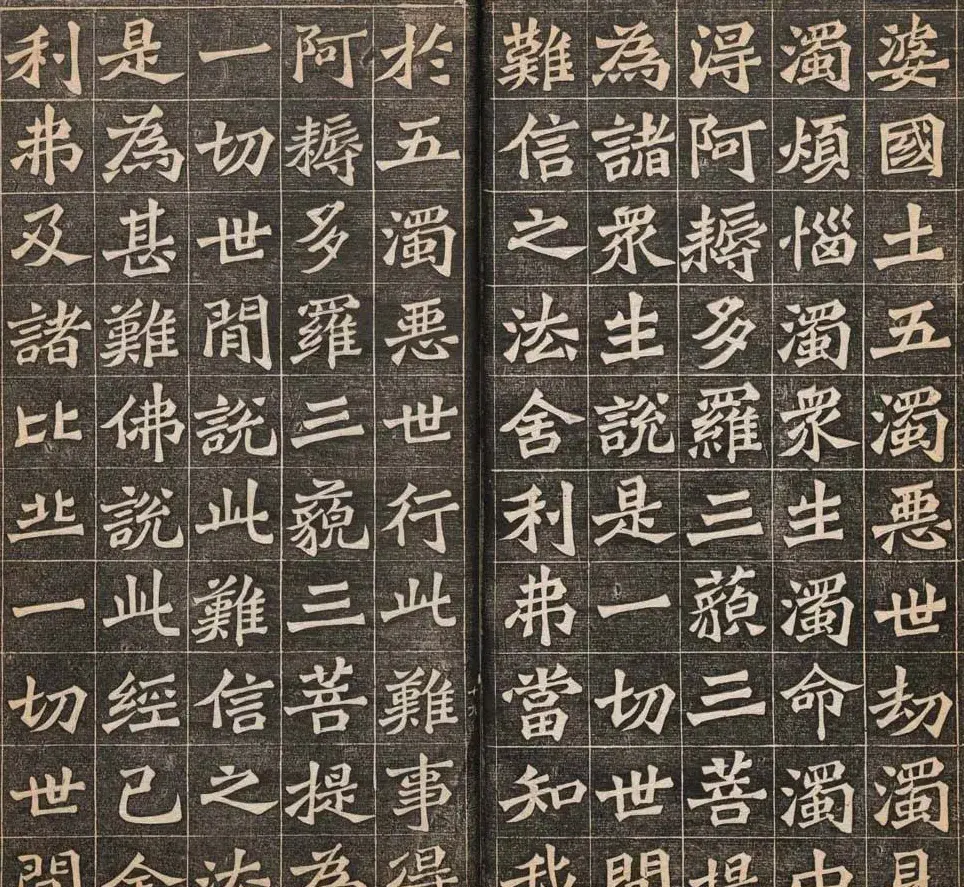 婆國土五濁悪世劫濁見
濁煩惱濁衆生濁命濁中
得阿耨多羅三藐三菩提
為諸衆生說是一切世間
難信之法舍利弗當知我
於五濁悪世行此難事得
阿耨多羅三藐三菩提為
一切世間說此難信之法
是為甚難佛說此經已舍
利弗及諸比丘一切世間